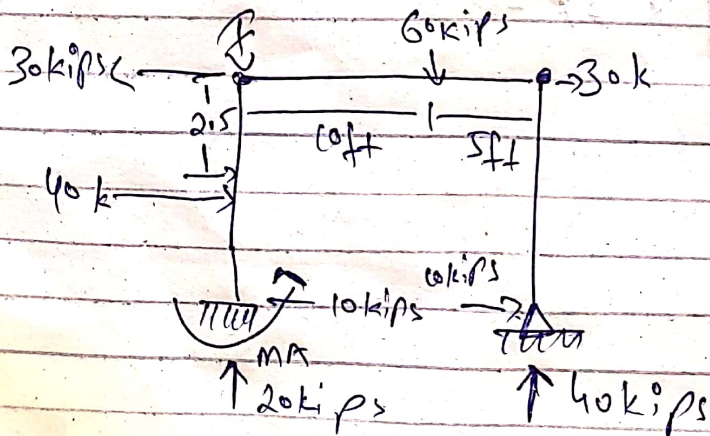 60kips
30kips
30k
2.5
10ft
5ft
40k
10kips
10kips
MA
20kips
40kips